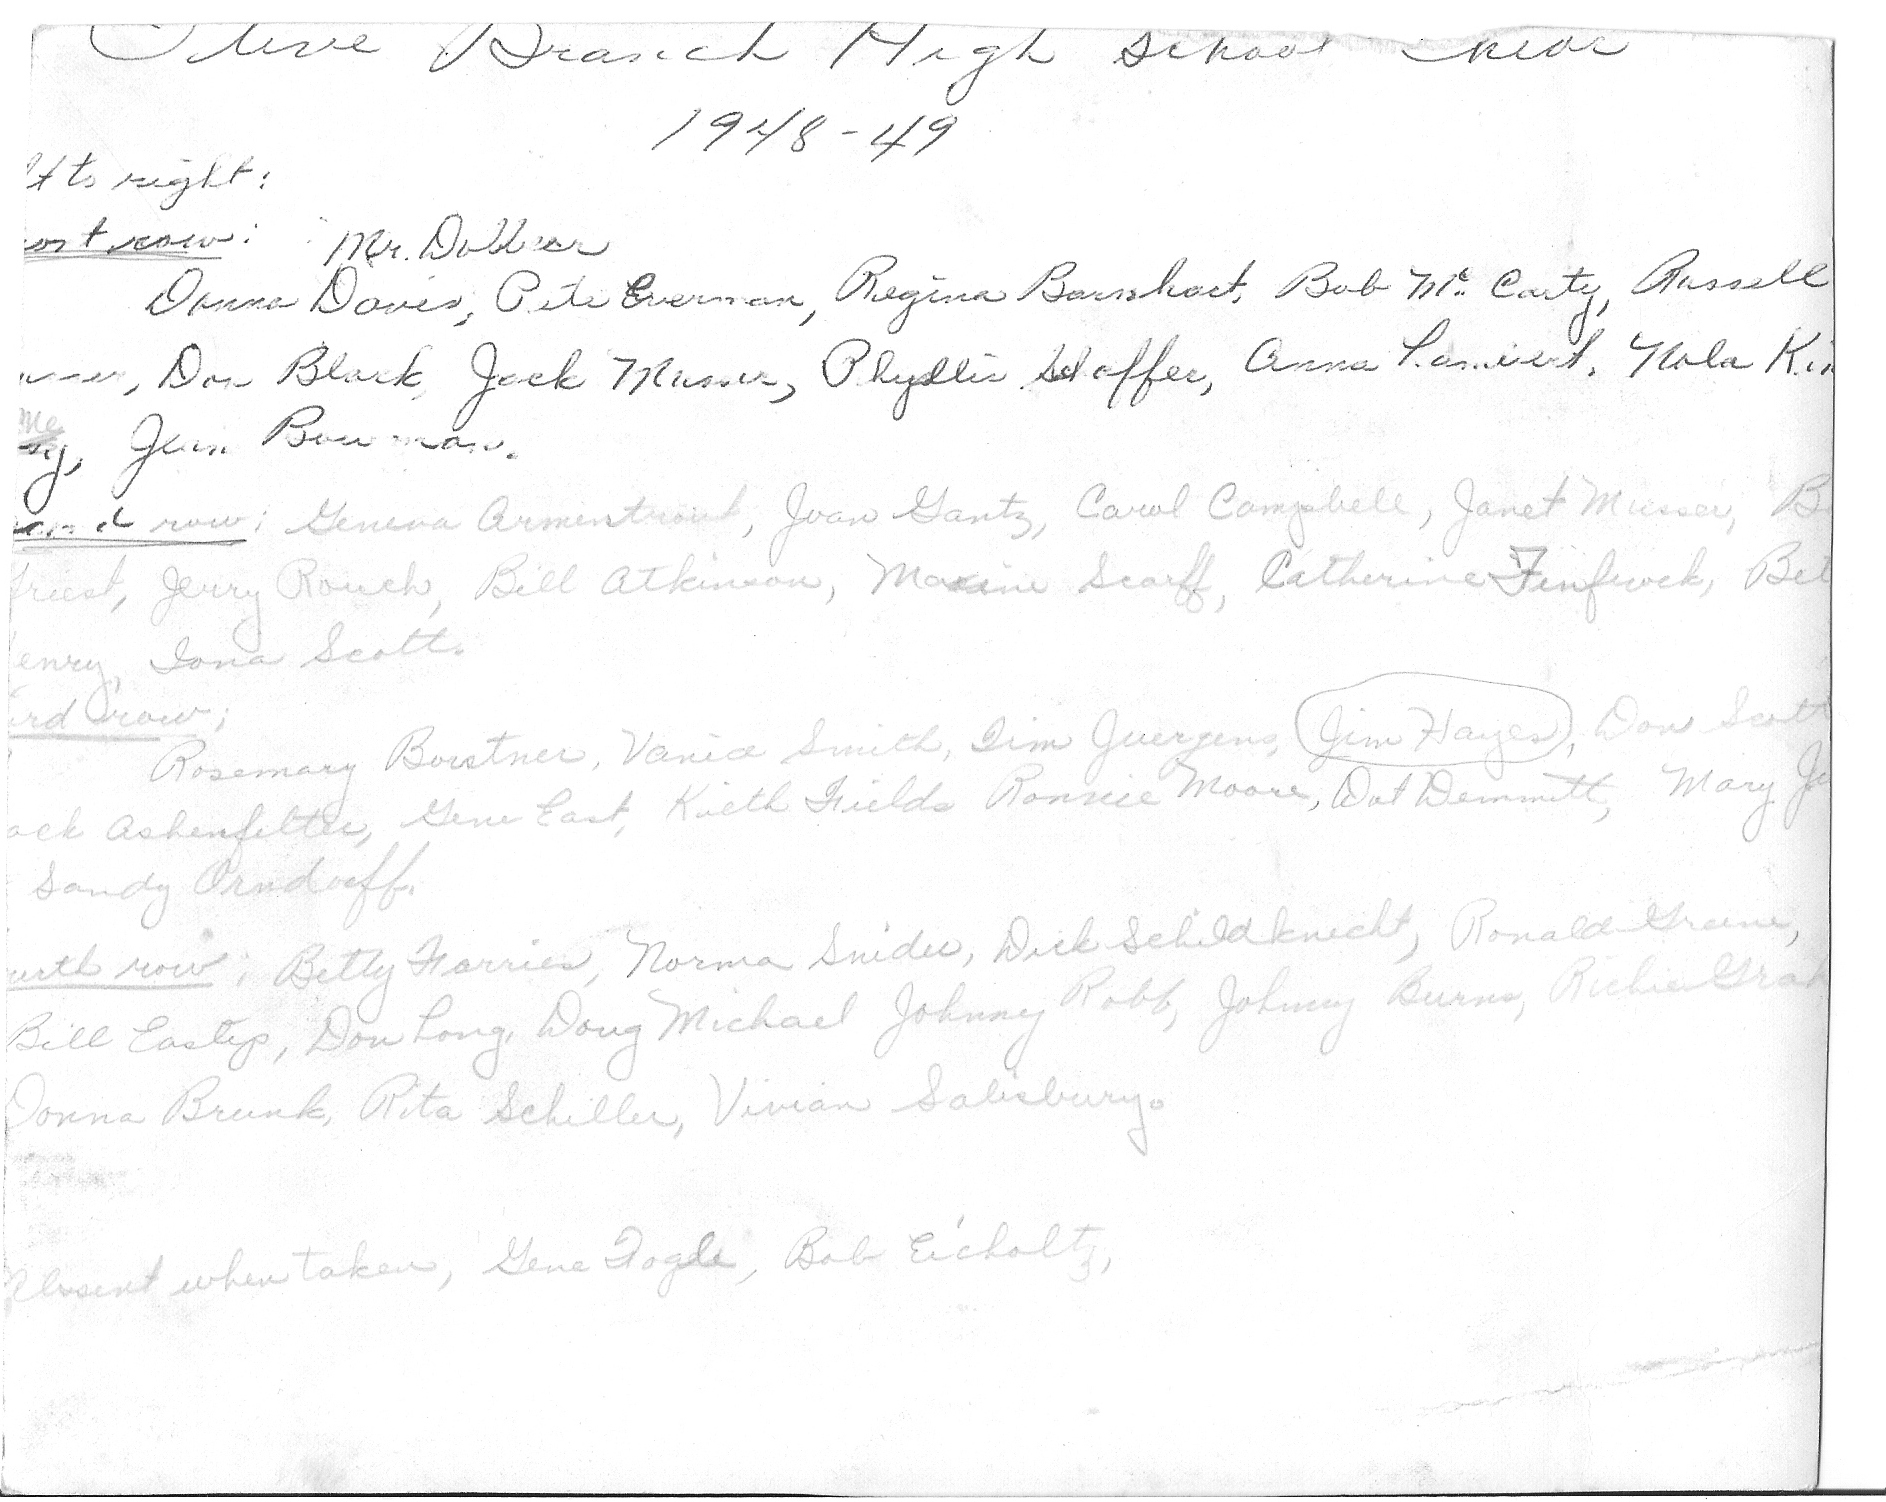 Olive Branch High School Choir
1948-49
ft to right:
row:
Mr. Dolbeer
Donna Davis, Pete Everman, Regina Barnhart, Bob Mc Carty, Russell
Don Black, Jack Musser, Phyllis Shaffer, Anna Lambert, Nola Kin
Jean Bowman.
row; Geneva Armentrout, Joan Gantz, Carol Campbell, Janet Musser, B
friest, Jerry Rouch, Bill Atkinson, Maxine Scarff, Catherine Finfrock, Bet
enry, Iona Scott.
ird row;
Rosemary Borstner, Vanice Smith, Jim Juergens, Jim Hayes, Don Scott
ack Ashenfelter, Gene East, Kieth Fields Ronnie Moore, Dot Demmitt, Mary J
Sandy Orndorff.
urth row; Betty Farries, Norma Snider, Dick Schildknecht, Ronald Greene,
Bill Eastep, Don Long, Doug Michael Johnny Robb, Johnny Burns, Richie Gra
Donna Brunk, Rita Schiller, Vivian Salisbury.
Absent when taken, Gene Fogle, Bob Eicholtz,